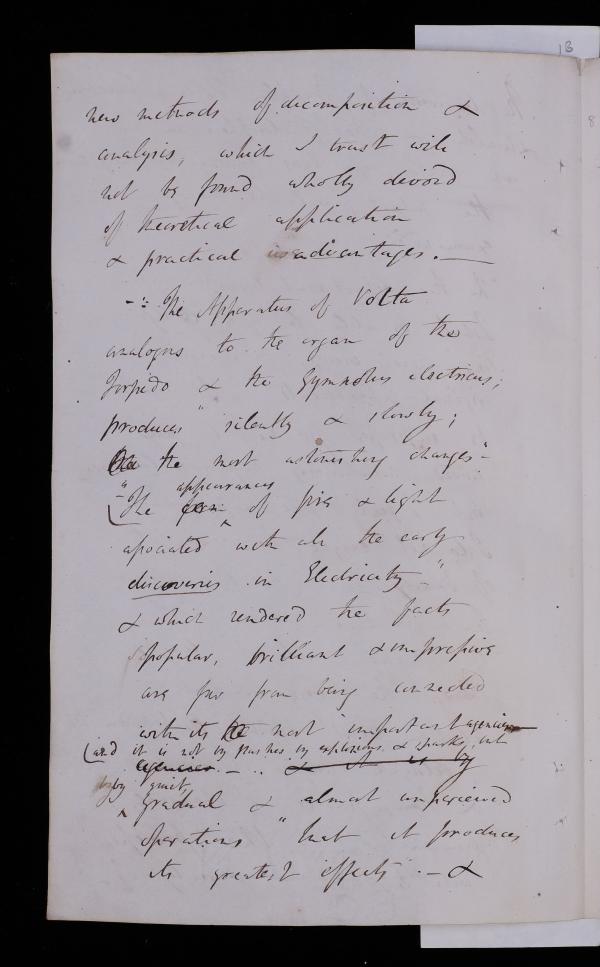 13
new methods of decomposition &
analysis, which I trust will
not be found wholly devoid
of theoretical application
& practical advantages. —
The Apparatus of Volta
analogous to the organ of the
Torpedo & the Gymnotus electricus;
produces "silently & slowly;
the most astonishing changes"-
"The appearances of fire & light
associated with all the early
discoveries in Electricity"
& which rendered the facts
popular, brilliant & impressive
are far from being connected
with its most important agencies
(and it is not by flashes by explosions & sparks, but
agencies — & it is by
by quiet,
gradual & almost unperceived
operations "that it produces
its greatest effects" - &
8